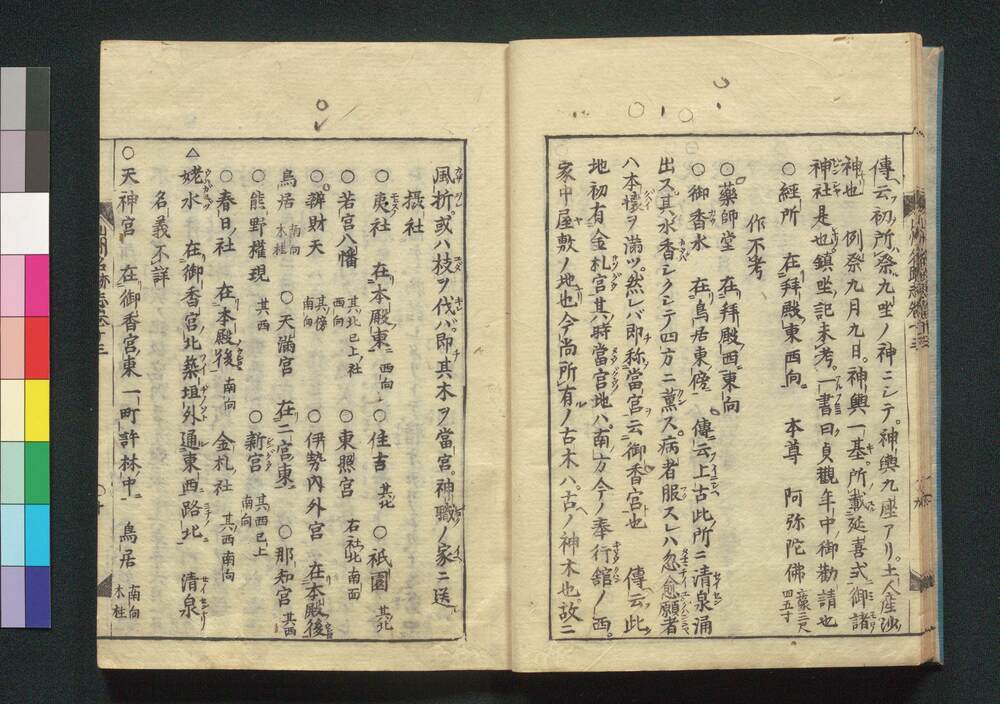 傳云初所祭九坐ノ神ニシテ神輿九座アリ土人産沙
神也 例祭九月九日神輿一基所載延喜式御諸
神社是也鎮坐記未考一書曰貞觀年中御勸請也
經所 在拜殿東西向 本尊 阿弥陀佛 座像三尺四五寸
作不考
○藥師堂 在拜殿西東向
○御香水 在鳥居東傍 傳云上古此所ニ清泉涌
出ス其水香シクシテ四方ニ薫ス病者服スレハ忽愈願者
ハ本懐ヲ滿ツ然レバ即称當宮云御香宮也 傳云此
地初有金札宮其時當宮地ハ南方今ノ奉行舘ノ西
家中屋敷ノ地也今尚所有ノ古木ハ古ノ神木也故ニ
風折或ハ枝ヲ伐ハ即其木ヲ當宮神職ノ家ニ送
攝社
○夷社 在本殿東 西向 ○住吉 其北 ○祇園 其北
○若宮八幡 其北已上社西向 ○東照宮 右社北南面
○辨財天 其傍南向 ○伊勢内外宮 在本殿後
鳥居 南向木柱 ○天滿宮 在二宮東 ○那知宮 其西
○熊野權現 其西 ○新宮 其西已上南向
○春日社 在本殿後 南向 金札社 其西南向
△姥水 在御香宮北築垣外通東西路北 清泉
名義不詳
○天神宮 在御香宮東一町許林中 鳥居 南向木柱